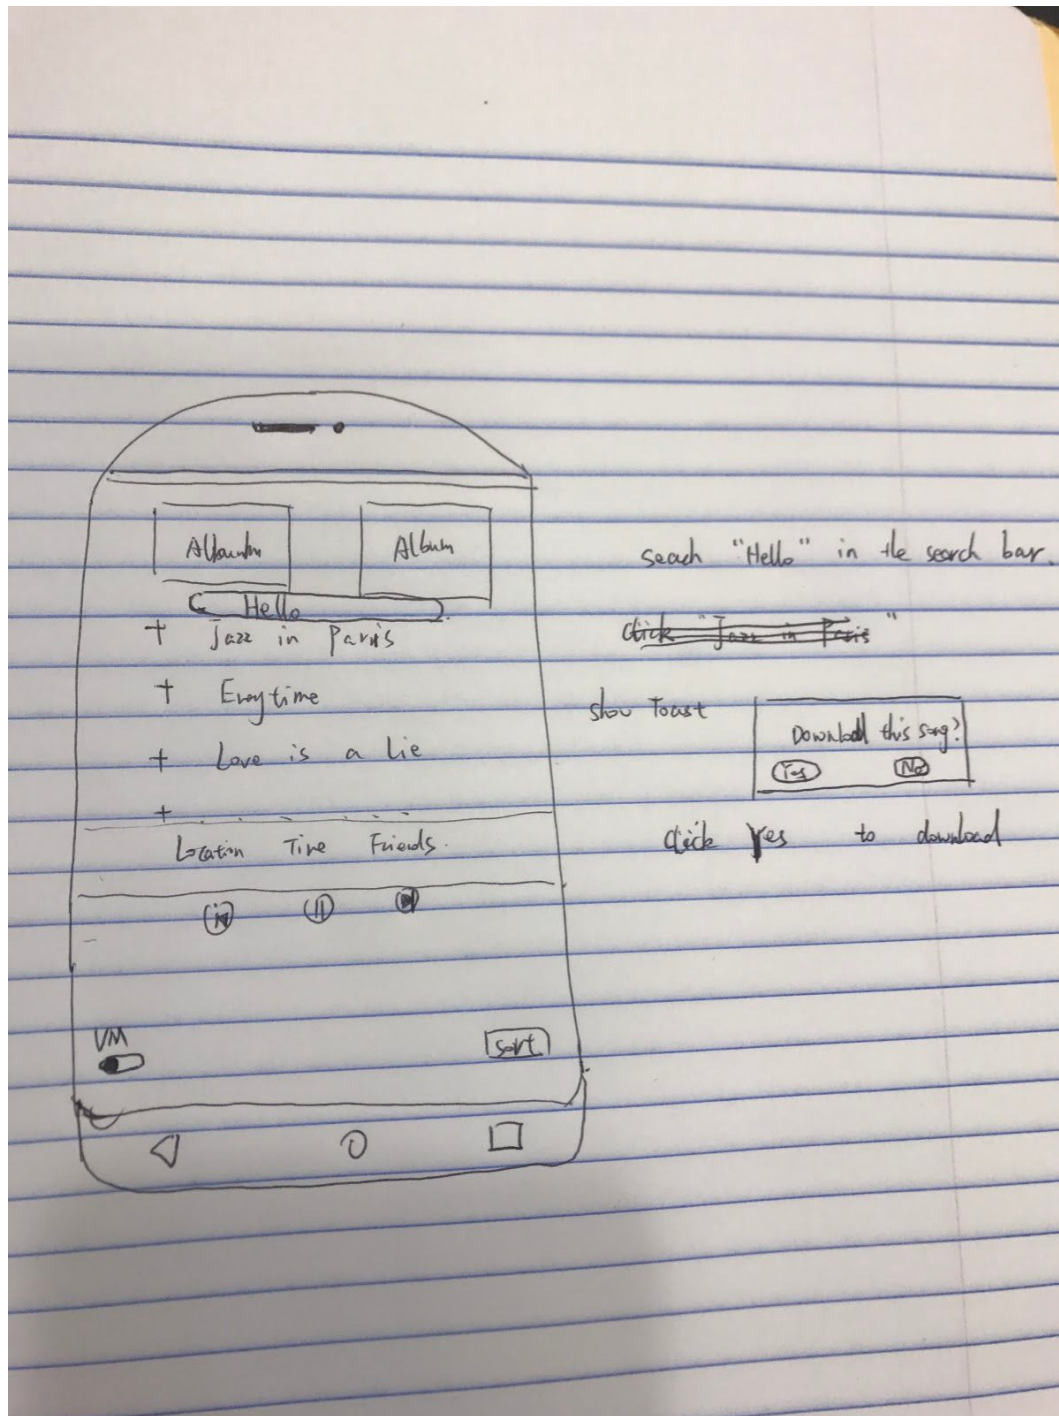 Albumm Album
Hello
+ Jazz in Paris
+ Everytime
+ Love is a Lie
+ . . . . . .
Location Time Friends.
VM
Sort
seach "Hello" in the search bar.
click "Jazz in Paris"
show Toast
Download this song?
Yes No
click Yes to download